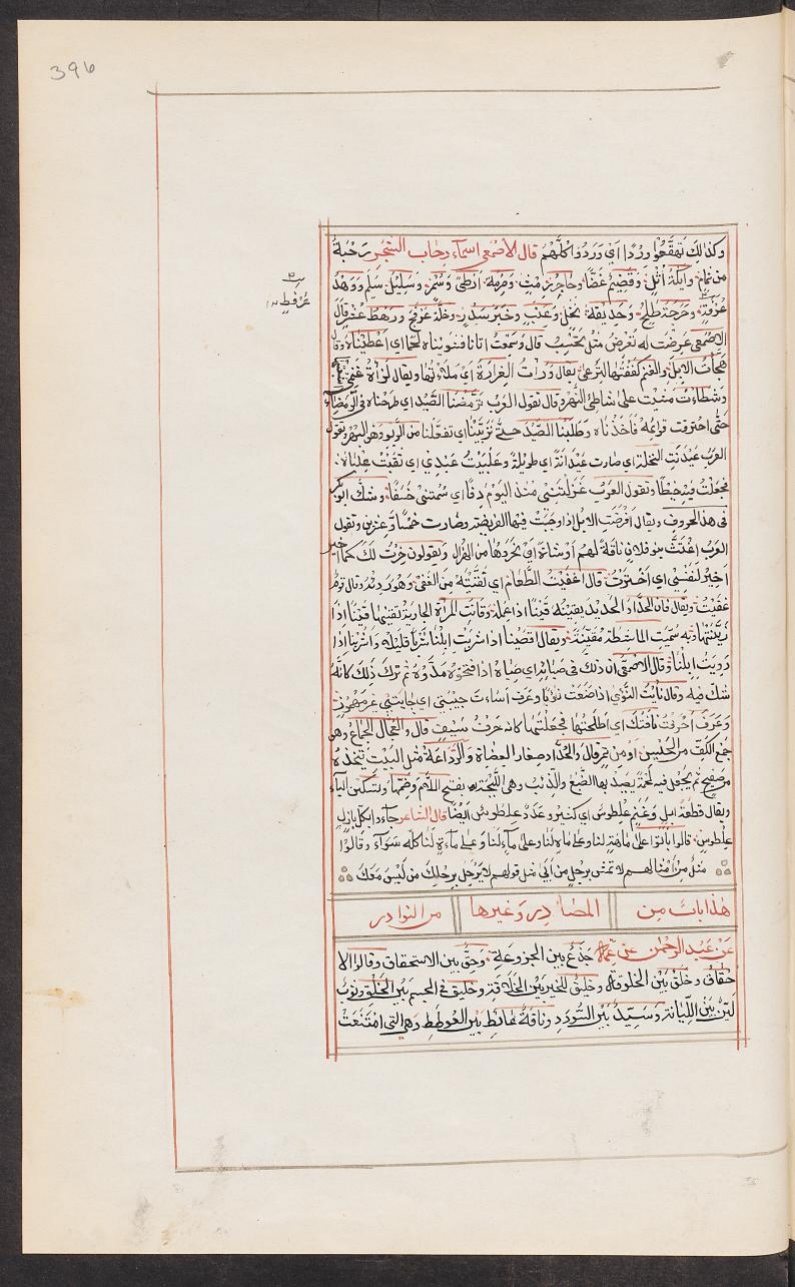 396
وكذلك تهقعوا وردا اي وردوا كلهم قال الأصمعي اسماء رحاب الشجر رحبة
من ثمام وايكة اثل وقصيم غضا وحاجر من رمث وصرمة ارطى وسمر وسليل سلم ووهط
عرفط
عرفط وحرجة طلح وحديقة نخل وعنب وخبر سدر وخلة عرفج ورهط عشر قال
الاصمعي عرضت له تعريض مثل تحسب قال وسمعت اتانا فنويناه لحما اي اعطيناه وقال
هجأت الابل والغنم كففتها لترعى يقال وزأت الغرارة اي ملأتها ويقال
وشطأت مشيت على شاطئ النهر وقال تقول العرب ترمضنا الصيد اي طردناه في الرمضاء
حتى احترقت قوائمه فاخذناه وطلبنا الصيد حتى تربينا اي تفعلنا من الربو وهو البهر وتقول
العرب عيدنت النخلة اي صارت عيدانة اي طويلة وعلبيت عبدي اي ثقبت علباءه
فجعلت فيه خيطا وتقول العرب منذ اليوم دقا اي سمتني خسفا وشك ابو بكر
في هذا الحروف ويقال افرضت الابل اذا وجبت فيها الفريضة وصارت خمسا وعشرين وتقول
العرب اغتثت بنو فلان ناقة لهم او شاة اي نحروها من الهزال ويقولون خرت لك كما اخير
اخير لنفسي اي اخترت قال اغفيت الطعام اي نقيته من الغفى وهو رديه وقال قوم
غفيت ويقال قان الحداد الحديد يقينه قينا اذا عمله وقانت المرأة الجارية تقينها قينا اذا
زينتها وبه سميت الماشطة مقينة ويقال اقصينا اذا شربت ابلنا شربا قليلا واشربنا اذا
رويت ابلنا وقال الاصمعي ان ذلك في ضياء اذا فتحوه مدوه ثم ترك ذلك كانه
شك فيه وقال نأيت النؤي اذا صنعت نؤيا وعرف اساءت جيبتي اي جابتني غير مهموز
وعرف احرفت ناقتك اي اطلحتها فجعلتها كانها حرف سيف قال والجماع وهو
جمع الكف من الحيس او من تمر قال والحداد صغار العضاة والرداعة مثل البيت تتخذه
من صفيح ثم يجعل فيه لحمة يصيد بها الضبع والذئب وهي اللجفة بفتح اللام وضمها وتسكين الياء
ويقال قطعة ابل وغنم علطوس اي كثير وعدد علطوس ايضا قال الشاعر جاءوا بكل بازل
علطوس قالوا باتوا على ماهة لنا وعلى ماه لنا وعلى ماء لنا وعلى ماءة لنا كله سواء وقالوا
مثل من امثالهم لا تمش برجل من ابى مثل قولهم لا يرحل برحلك من ليس معك
هذا باب من المصادر وغيرها من النوادر
عن عبد الرحمن عن عمه جذع بين الجزوعة وحق بين الاستحقاق وقالوا الا
حقاق وخلق بين الخلوقة وخليق للخير بين الخلاقة وخليق في الجسم بين الخلق وثوب
لين بين الليانة وسيد بين السودد وناقة عائط بين العوطط وهي التي امتنعت